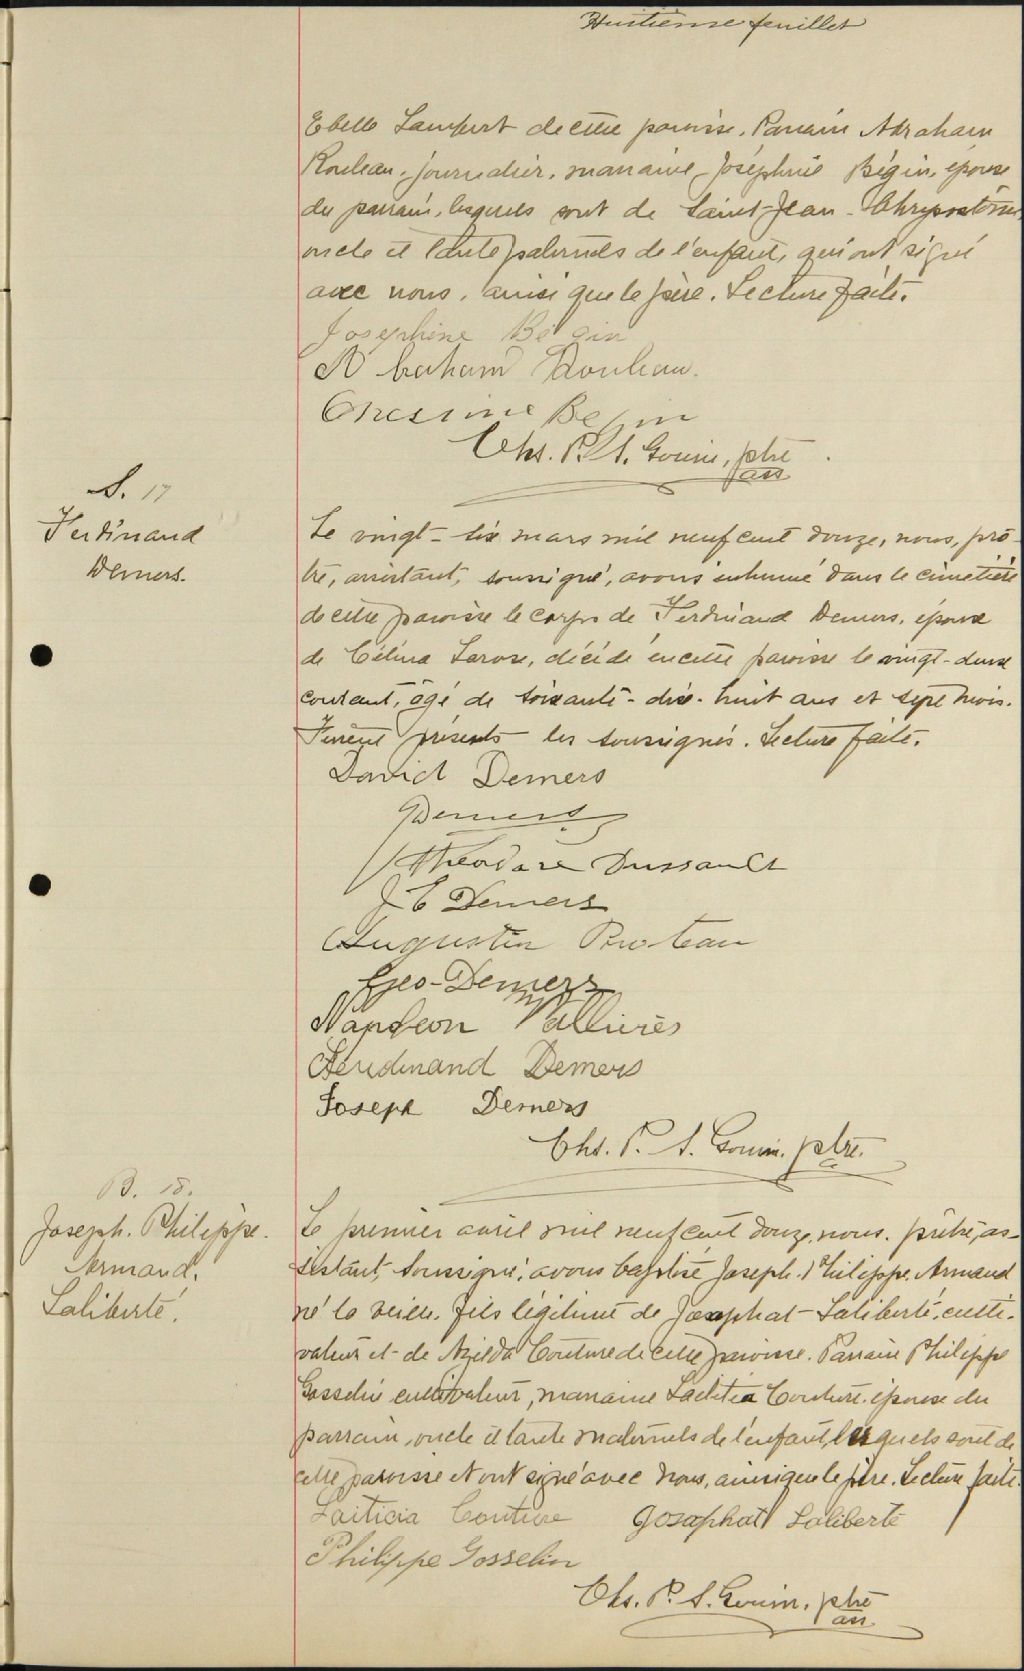 Huitième feuillet
Ebelle Lambert de cette paroisse. Parrain Abraham
Rouleau, journalier, marraine, Joséphine Bégin, épouse
du parrain, lesquels sont de Saint-Jean-Chrysostôme,
oncle et tante paternels de l'enfant, qui ont signé
avec nous, ainsi que le père. Lecture faite.
Josephine Bégin
Abraham Rouleau.
Onesime Begin
Chs. P. S. Gouin, ptre
ass
S. 17
Ferdinand
Demers.
Le vingt-six mars mil neuf cent douze, nous, prê-
tre, assistant, soussigné, avons inhumé dans le cimetière
de cette paroisse le corps de Ferdinand Demers, époux
de Célina Larose, décédé en cette paroisse le vingt-deux
courant, âgé de soixante-dix-huit ans et sept mois.
Furent présents les soussignés. Lecture faite.
David Demers
Demers
Theodore Dussault
J E Demers
Augustin Proteau
Geo-Demers
Napoleon Vallières
Ferdinand Demers
Joseph Demers
Chs. P. S. Gouin. ptre.
a
B. 18.
Joseph. Philippe.
Armand.
Laliberté.
Le premier avril mil neuf cent douze, nous. prêtre, as-
sistant, soussigné, avons baptisé Joseph. Philippe. Armand
né la veille. fils légitime de Josaphat Laliberté, culti-
vateur et de Azilda Couture de cette paroisse. Parrain Philippe
Gosselin cultivateur, marraine Laetitia Couture. épouse du
parrain, oncle et tante maternels de l'enfant, lesquels sont de
cette paroisse et ont signé avec nous, ainsi que le père. Lecture faite.
Laiticia Couture Josaphat Laliberté
Philippe Gosselin
Chs. P. S. Gouin, ptre
ass.